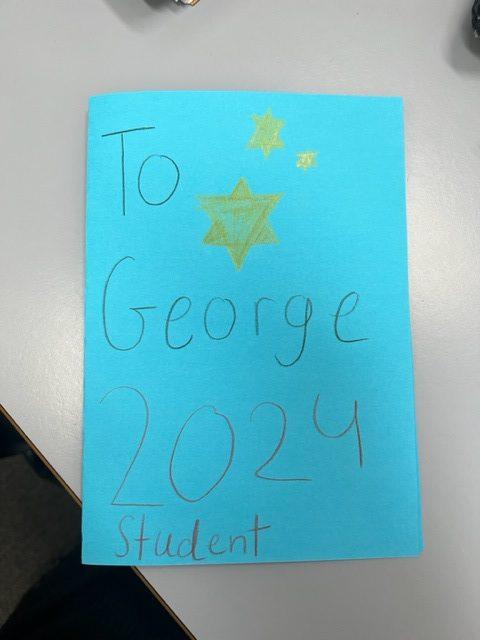 To
George
2024
Student